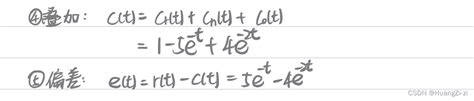 ④叠加: C(t) = C₁(t) + Cₙ(t) + C₀(t)
= 1-5e^-t + 4e^-2t
⑤偏差: e(t) = r(t) - C(t) = 5e^-t - 4e^-2t
CSDN @HuangZi-zi